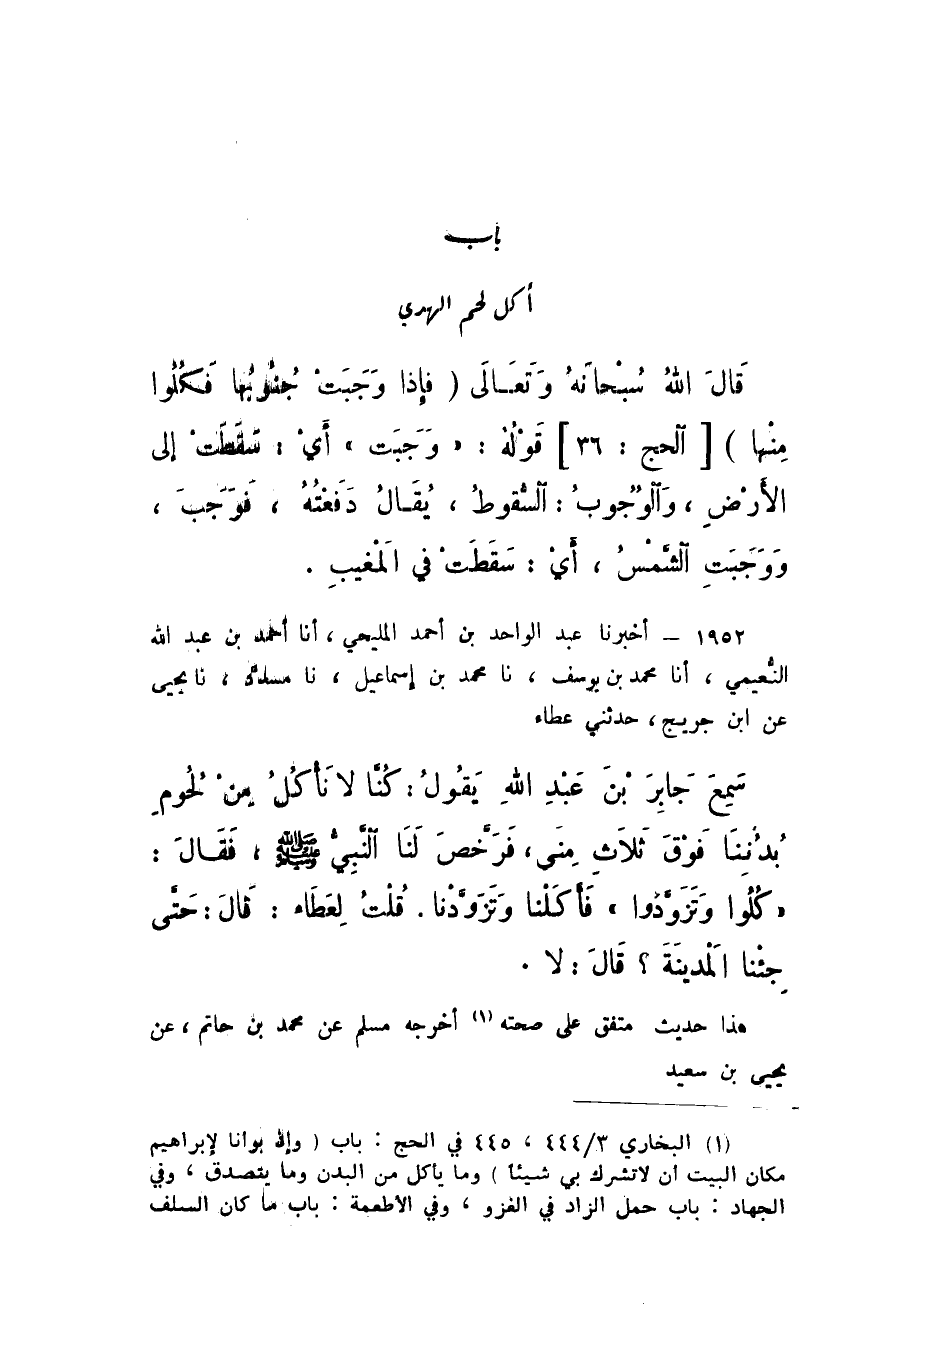 باب
أكل لحم الهدي
قَالَ اللهُ سُبْحانَهُ وَتَعَـالَى ( فإِذا وَجَبَتْ جُنُوبُها فَكُلُوا
مِنْها ) [ اَلحج : ٣٦ ] قَوْلُهُ : « وَجَبَت » أَيْ : سَقَطَتْ إلى
الأَرْضِ ، وَاَلوُجوبُ : اَلسُّقوطُ ، يُقَـالُ دَفَعْتُهُ ، فَوَجَبَ ،
وَوَجَبَتِ اَلشَّمْسُ ، أَيْ : سَقَطَتْ في اَلمْغيبِ .
١٩٥٢ – أخبرنا عبد الواحد بن أحمد المليحي ، أنا أحمد بن عبد الله
النُّعيمي ، أنا محمد بن يوسف ، نا محمد بن إسماعيل ، نا مسدد ، نا يحيى
عن ابن جريج ، حدثني عطاء
سَمِعَ جَابِرَ بْنَ عَبْدِ اللهِ يَقُولُ : كُنَّا لا نَأْكُلُ مِنْ لُحُومِ
بُدْنِنَا فَوْقَ ثَلاَثِ مِنَى ، فَرَخَّصَ لَنَا اَلنَّبِيُّ ﷺ ، فَقَـالَ :
« كُلُوا وَتَزَوَّدُوا » فَأَكَلْنا وَتَزَوَّدْنا . قُلْتُ لِعَطَاء : قَالَ : حَتَّى
جِئْنا اَلْمدينَةَ ؟ قَالَ : لا .
هذا حديث متفق على صحته (١) أخرجه مسلم عن محمد بن حاتم ، عن
يحيى بن سعيد
(١) البخاري ٤٤٤/٣ ، ٤٤٥ في الحج : باب ( وإذ بوأنا لإبراهيم
مكان البيت أن لاتشرك بي شيئاً ) وما يأكل من البدن وما يتصدق ، وفي
الجهاد : باب حمل الزاد في الغزو ، وفي الأطعمة : باب ما كان السلف